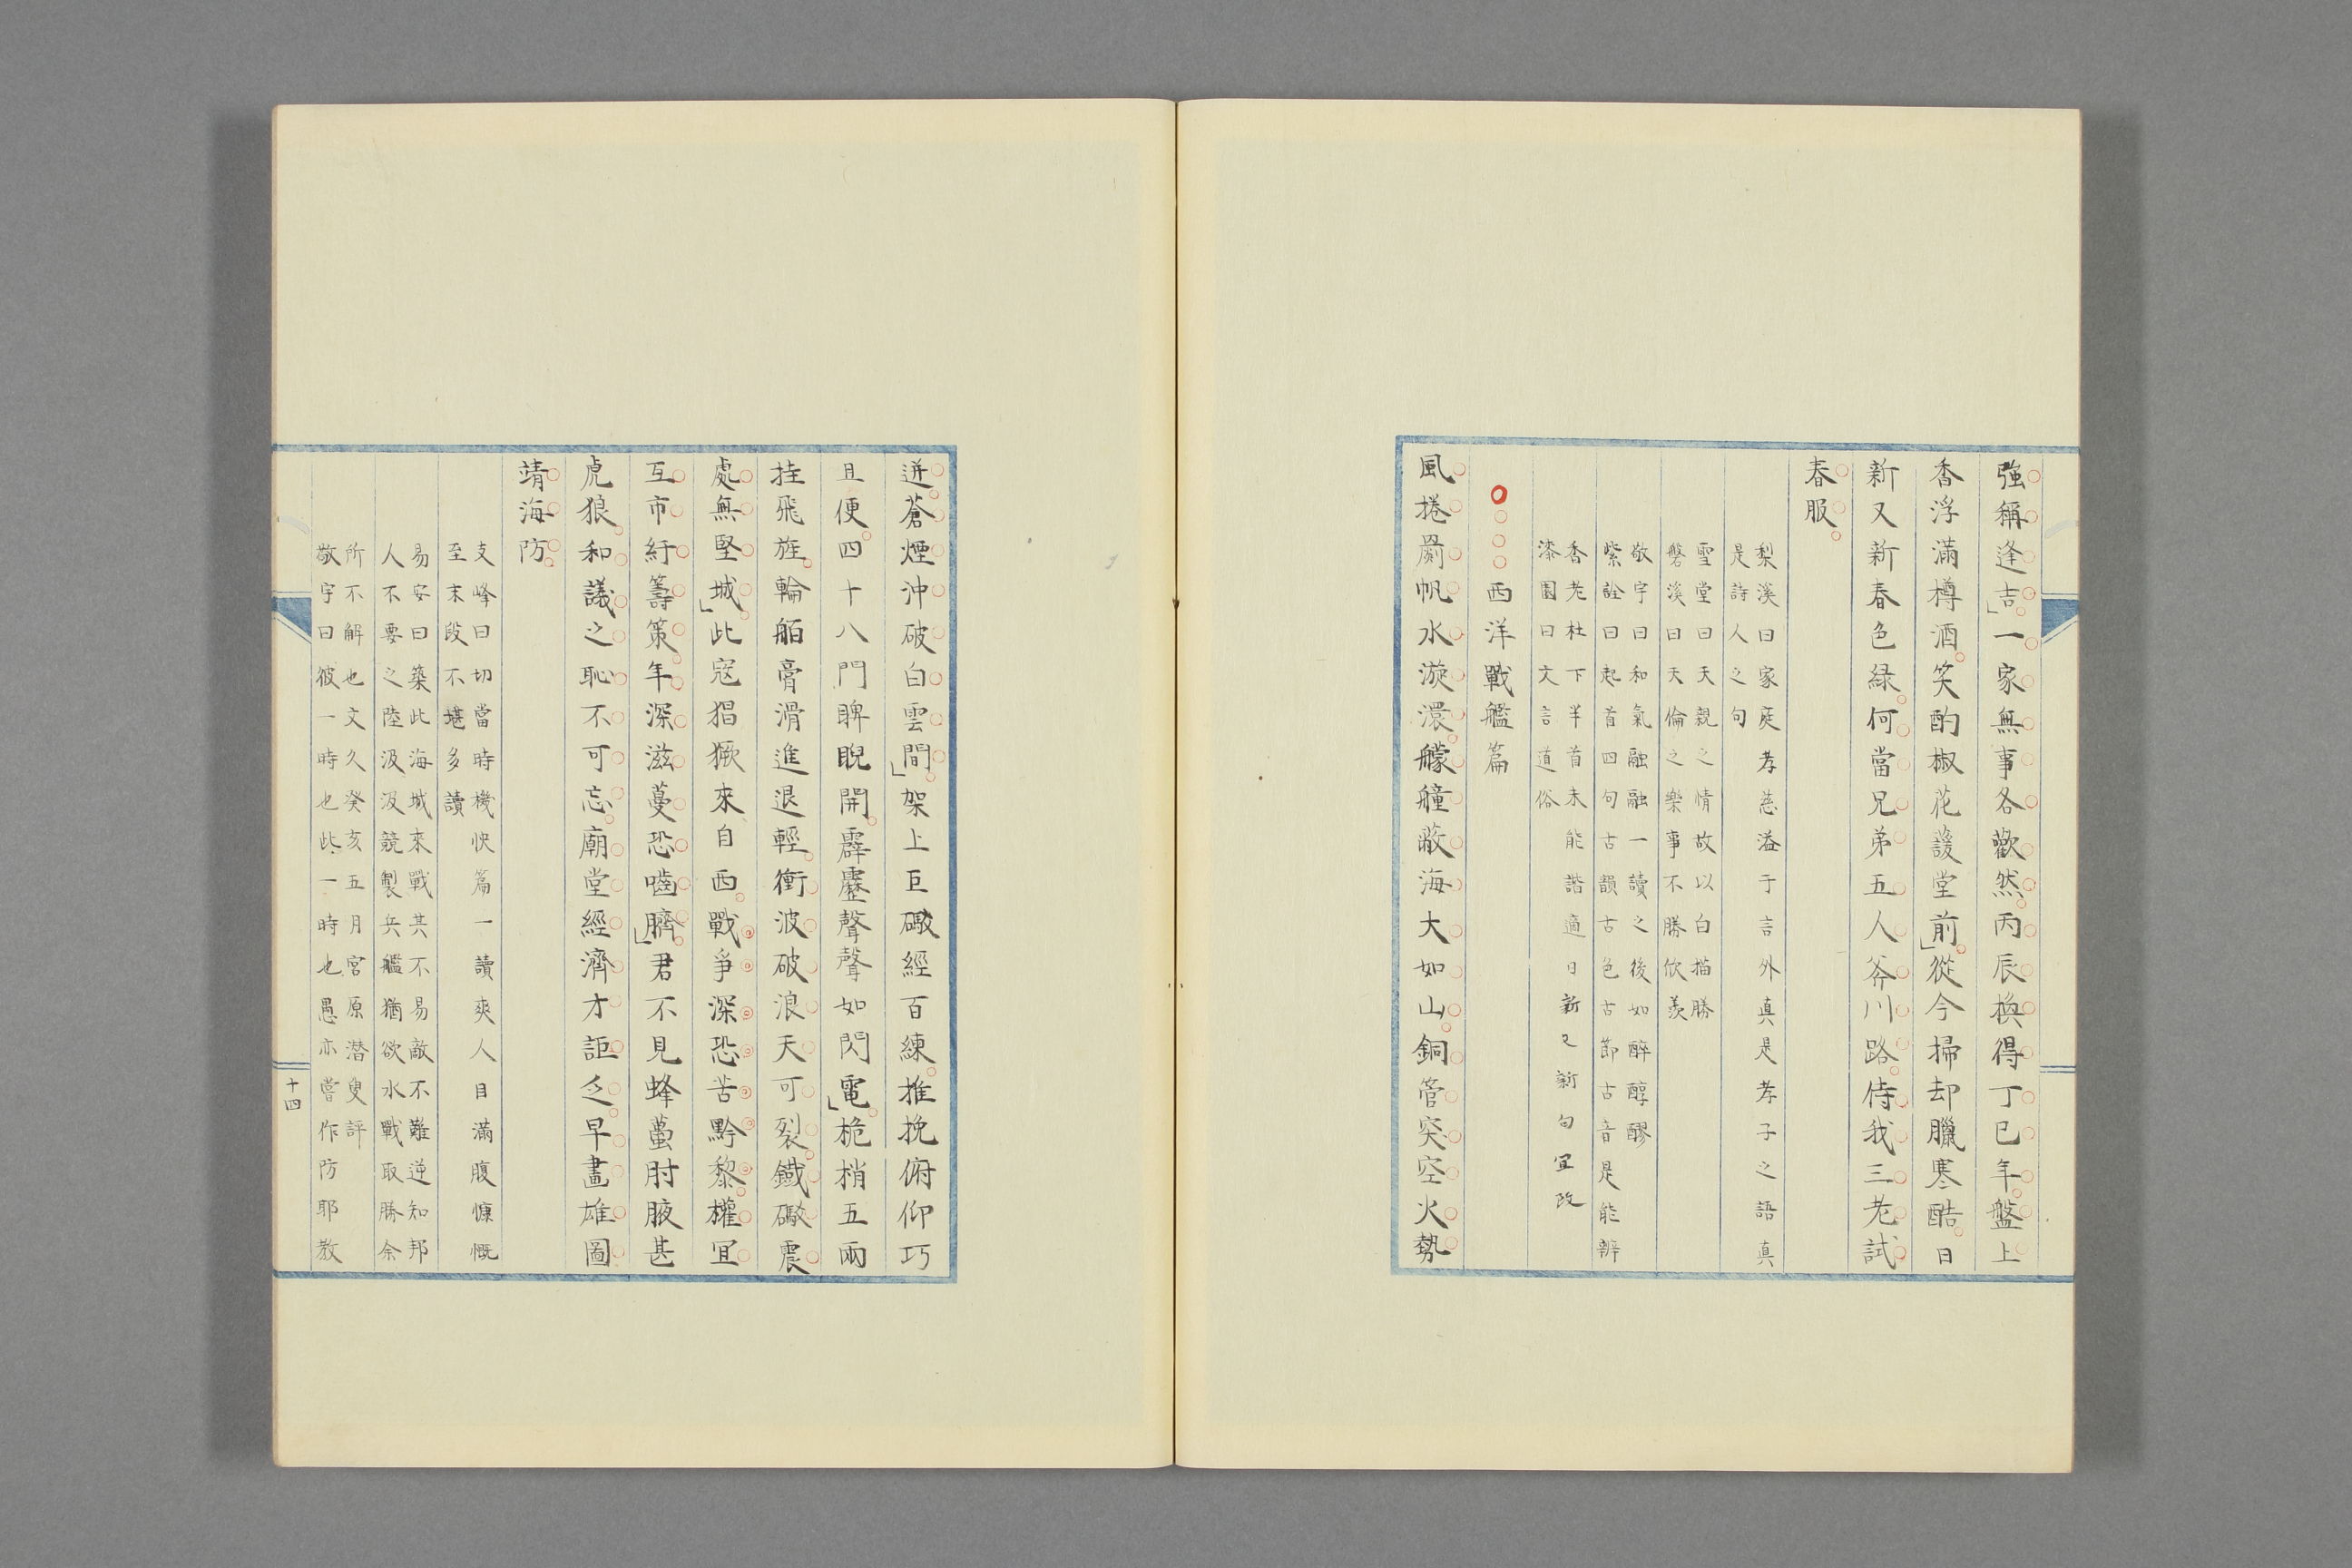 強稱逢吉一家無事各歡然丙辰換得丁巳年盤上
香浮滿樽酒笑酌椒花護堂前從今掃却臘寒酷日
新又新春色緑何當兄弟五人斧川路侍我三老試
春服
梨溪曰家庭孝慈溢于言外真是孝子之語真
是詩人之句
雪堂曰天親之情故以白描勝
磐溪曰天倫之樂事不勝欣羨
敬宇曰和氣融融一讀之後如醉醇醪
紫詮曰起首四句古韻古色古節古音是能辨
香老杜下半首未能諧適日新又新句宜改
漆園曰文言道俗
西洋戰艦篇
風捲罽帆水漩澴艨艟蔽海大如山銅管突空火勢
迸蒼煙沖破白雲間架上巨礮經百練推挽俯仰巧
且便四十八門睥睨開霹靂聲聲如閃電桅梢五兩
挂飛旌輪舶膏滑進退輕衝波破浪天可裂鐵礮震
處無堅城此寇猖獗來自西戰爭深恐苦黔黎權宜
互市紆籌策年深滋蔓恐嚙臍君不見蜂蠆肘腋甚
虎狼和議之恥不可忘廟堂經濟才詎乏早畫雄圖
靖海防
支峰曰切當時機快篇一讀爽人目滿腹慷慨
至末段不堪多讀
易安曰築此海城來戰其不易敵不難逆知邦
人不要之陸汲汲競製兵艦猶欲水戰取勝余
所不解也文久癸亥五月宮原潜叟評
敬宇曰彼一時也此一時也愚亦嘗作防耶教
十四